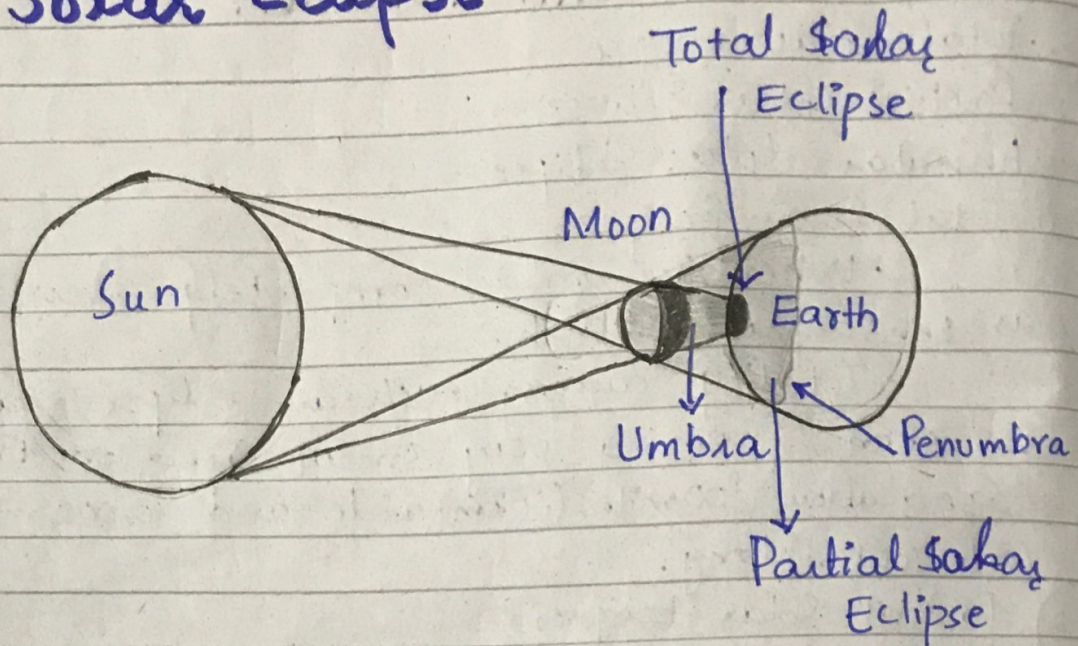 Solar Eclipse
Total Solar
Eclipse
Moon
Sun
Earth
Umbra
Penumbra
Partial Solar
Eclipse